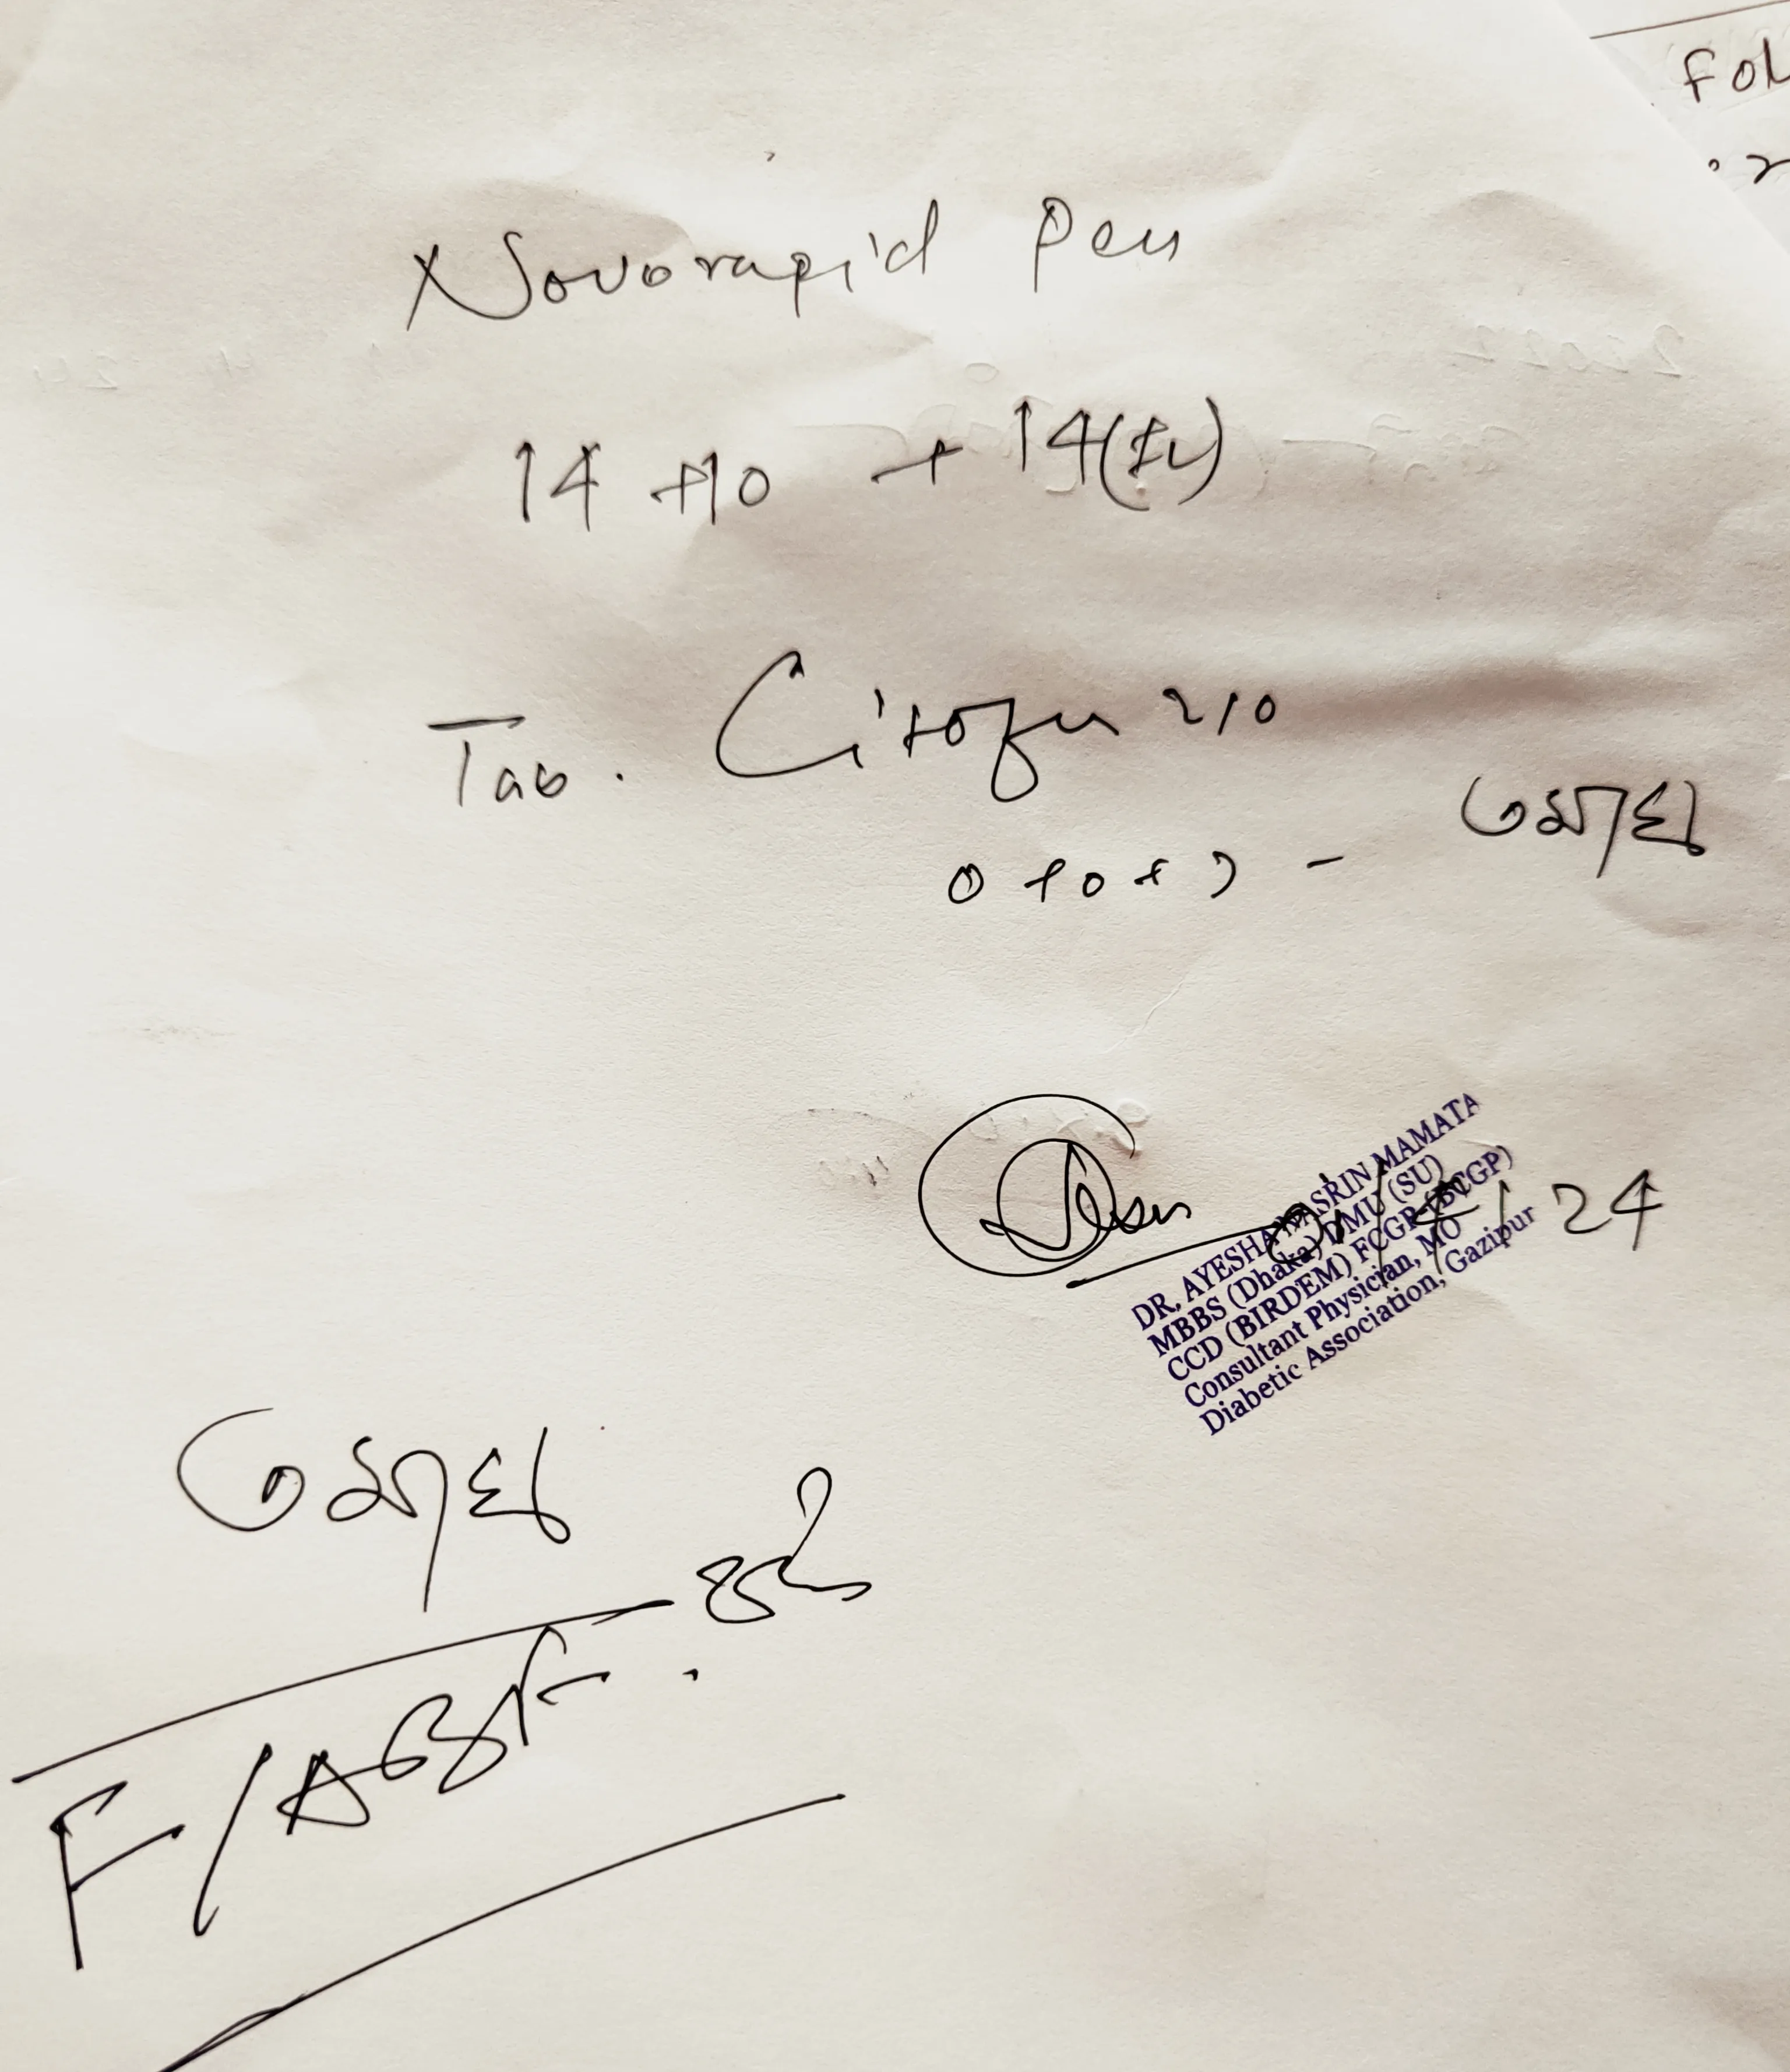 Fol
Novorapid Pen
14 +10 + 14(IU)
Tab.
0 +0 + ১ - ৩মাস
24
DR. AYESHA NASRIN MAMATA
MBBS (Dhaka) DMU (SU)
CCD (BIRDEM) FCGP (BCGP)
Consultant Physician, MO
Diabetic Association, Gazipur
৩মাস
পর